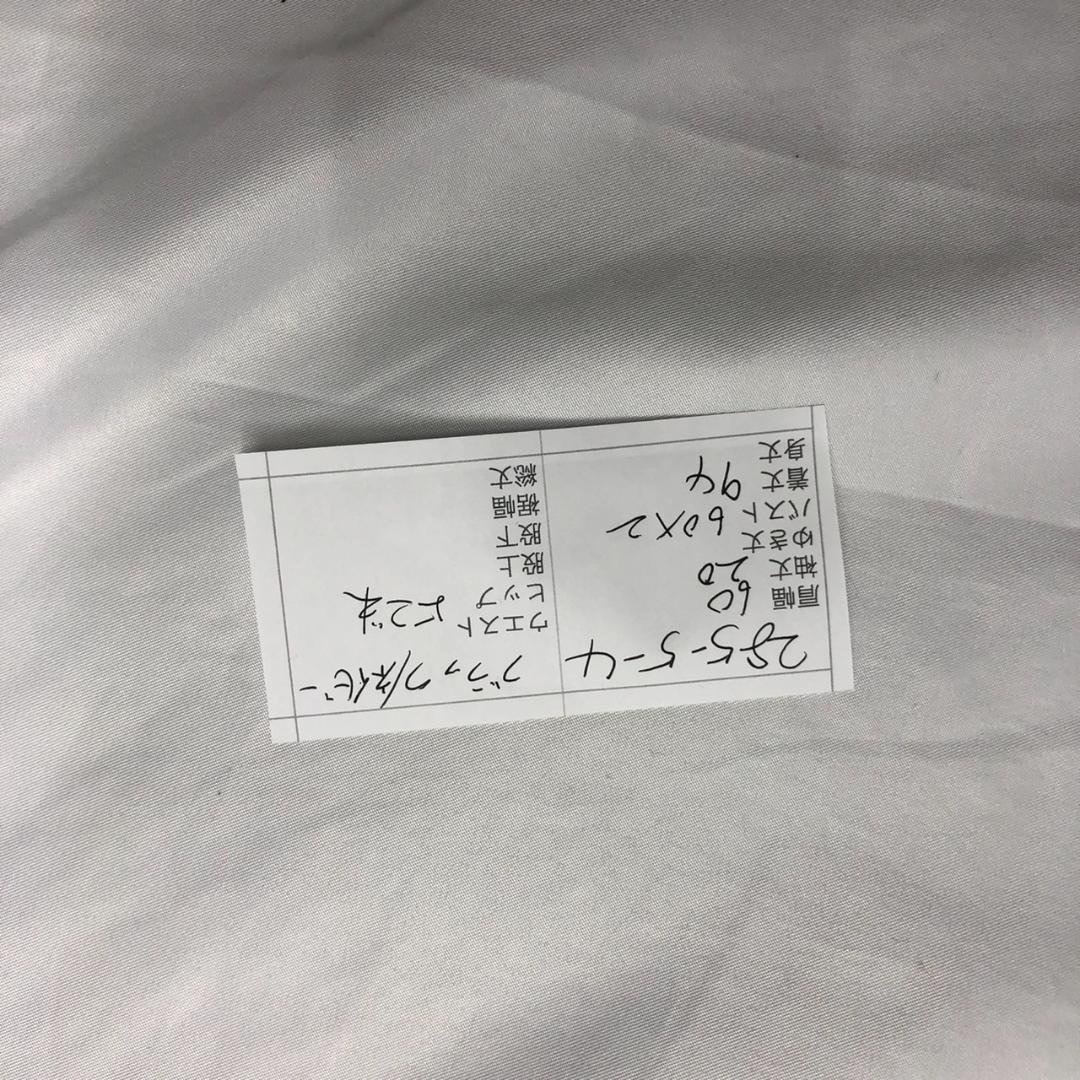 285-5-4
肩幅 60
袖丈 20
ゆき丈
バスト 60×2
着丈 94
身丈
ブラック/ネイビー
ウエスト
ヒップ
股上
股下
裾幅
総丈